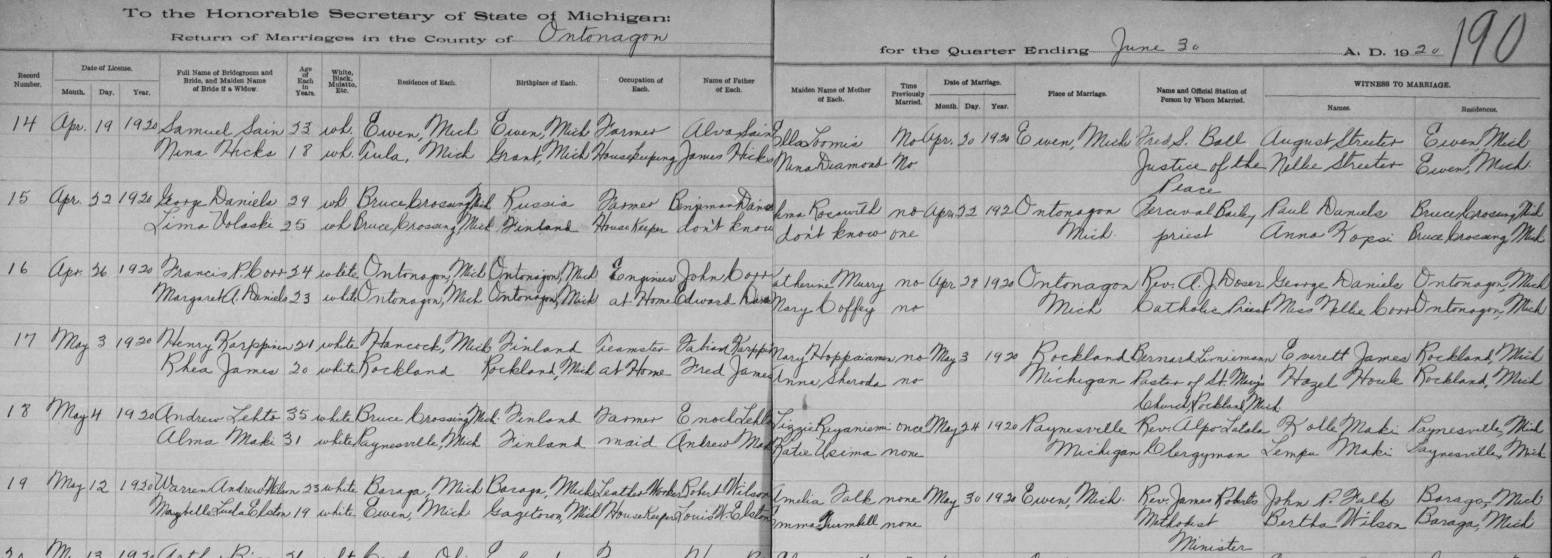 To the Honorable Secretary of State of Michigan:
Return of Marriages in the County of Ontonagon for the Quarter Ending June 30 A. D. 1920 190
Record Number. Date of License. Month. Day. Year. Full Name of Bridegroom and Bride, and Maiden Name of Bride if a Widow. Age of Each in Years. White, Black, Mulatto, Etc. Residence of Each. Birthplace of Each. Occupation of Each. Name of Father of Each. Maiden Name of Mother of Each. Time Previously Married. Date of Marriage. Month. Day. Year. Place of Marriage. Name and Official Station of Person by Whom Married. WITNESS TO MARRIAGE. Names. Residences.
14 Apr. 19 1920 Samuel Sain 23 wh. Ewen, Mich Ewen, Mich Farmer Alva Sain Ella Loomis No Apr. 20 1920 Ewen, Mich Fred S. Ball August Streeter Ewen, Mich
Nina Hicks 18 wh. Tula, Mich Grant, Mich Housekeeping James Hicks Nina Diamond No Justice of the Nellie Streeter Ewen, Mich
Peace
15 Apr. 22 1920 George Daniels 29 wh Bruce Crossing Mich Russia Farmer Benjaman no Apr. 22 192 Ontonagon Percival Baily Paul Daniels Bruce Crossing Mich
Lima Volaski 25 wh Bruce Crossing, Mich Finland House Keeper don't know don't know one Mich. priest Anna Kopsi Bruce Crossing Mich
16 Apr. 26 1920 Francis P. Corr 24 white Ontonagon, Mich Ontonagon, Mich Engineer John Corr atherine Murry no Apr. 28 1920 Ontonagon Rev. A. J. Doser George Daniels Ontonagon, Mich
Margaret A. Daniels 23 white Ontonagon, Mich Ontonagon, Mich at Home Edward Mary Coffey no Mich Catholic Priest Miss Nellie Corr Ontonagon, Mich
17 May 3 1920 Henry Karppinen 21 white Hancock, Mich Finland Teamster Fabian Karppi Mary Hoppaianen no May 3 1920 Rockland Bernard Linnemann Everett James Rockland, Mich
Rhea James 20 white Rockland Rockland, Mich at Home Fred James Anna Sheroda no Michigan Pastor of St. Mary's Hazel Houk Rockland, Mich
Church Rockland Mich
18 May 4 1920 Andrew Lehto 35 white Bruce Crossing Mich. Finland Farmer Enoch Leht Lizzie once May 24 1920 Paynesville Rev. Alpo Kolle Maki Paynesville, Mich
Alma Maki 31 white Paynesville, Mich Finland maid Andrew Mak Katie Asima none Michigan Clergyman Lempu Maki Paynesville, Mich
19 May 12 1920 Warren Andrew Wilson 23 white Baraga, Mich Baraga, Mich Leather Worker Robert Wilson Amelia Falk none May 30 1920 Ewen, Mich. Rev. James Roberts John P. Falk Baraga, Mich
Maybelle Lucla Elston 19 white Ewen, Mich Gagetown, Mich House Keeper Louis W. Elston Emma none Methodist Bertha Wilson Baraga, Mich
Minister